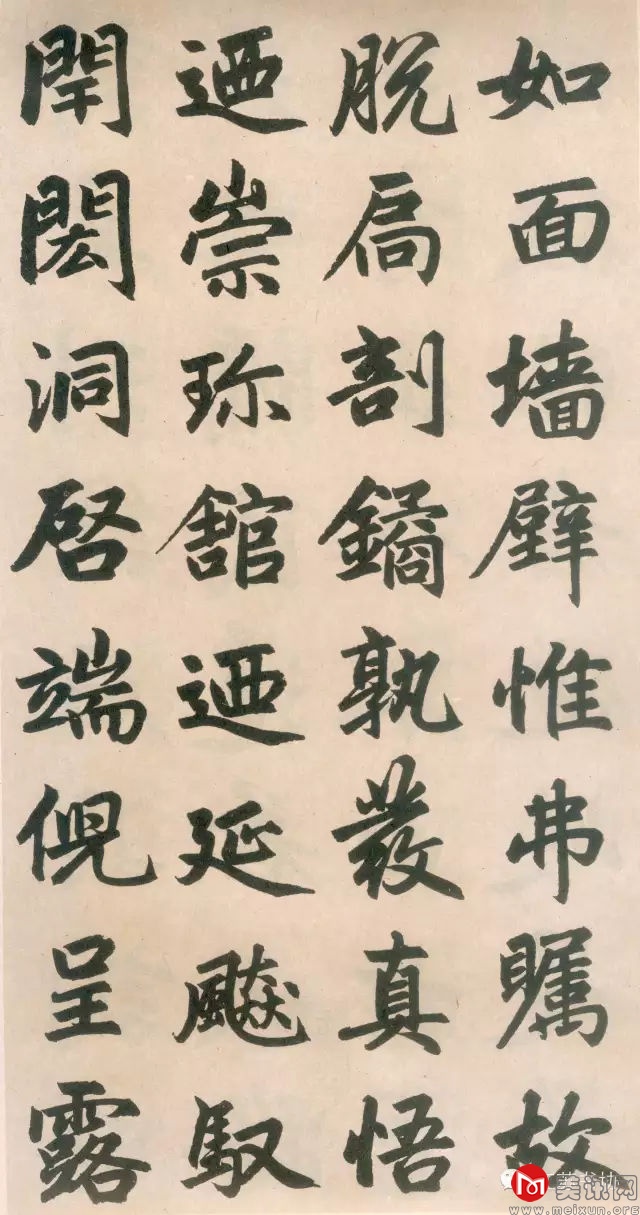 如面墙壁惟弗瞩故
脱扃剖鐍孰發真悟
迺崇珍館迺延飇馭
閈閎洞啓端倪呈露
美讯网
www.meixun.org